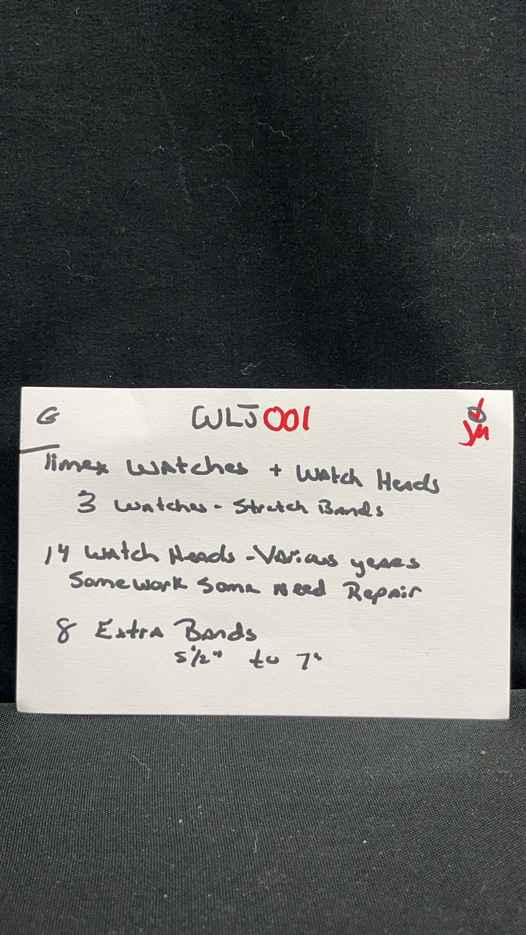 G WLJ001 JM
Timex Watches + Watch Heads
3 Watches - Stretch Bands
14 Watch Heads - Various years
Some work Some Need Repair
8 Extra Bands
5 1/2" to 7"